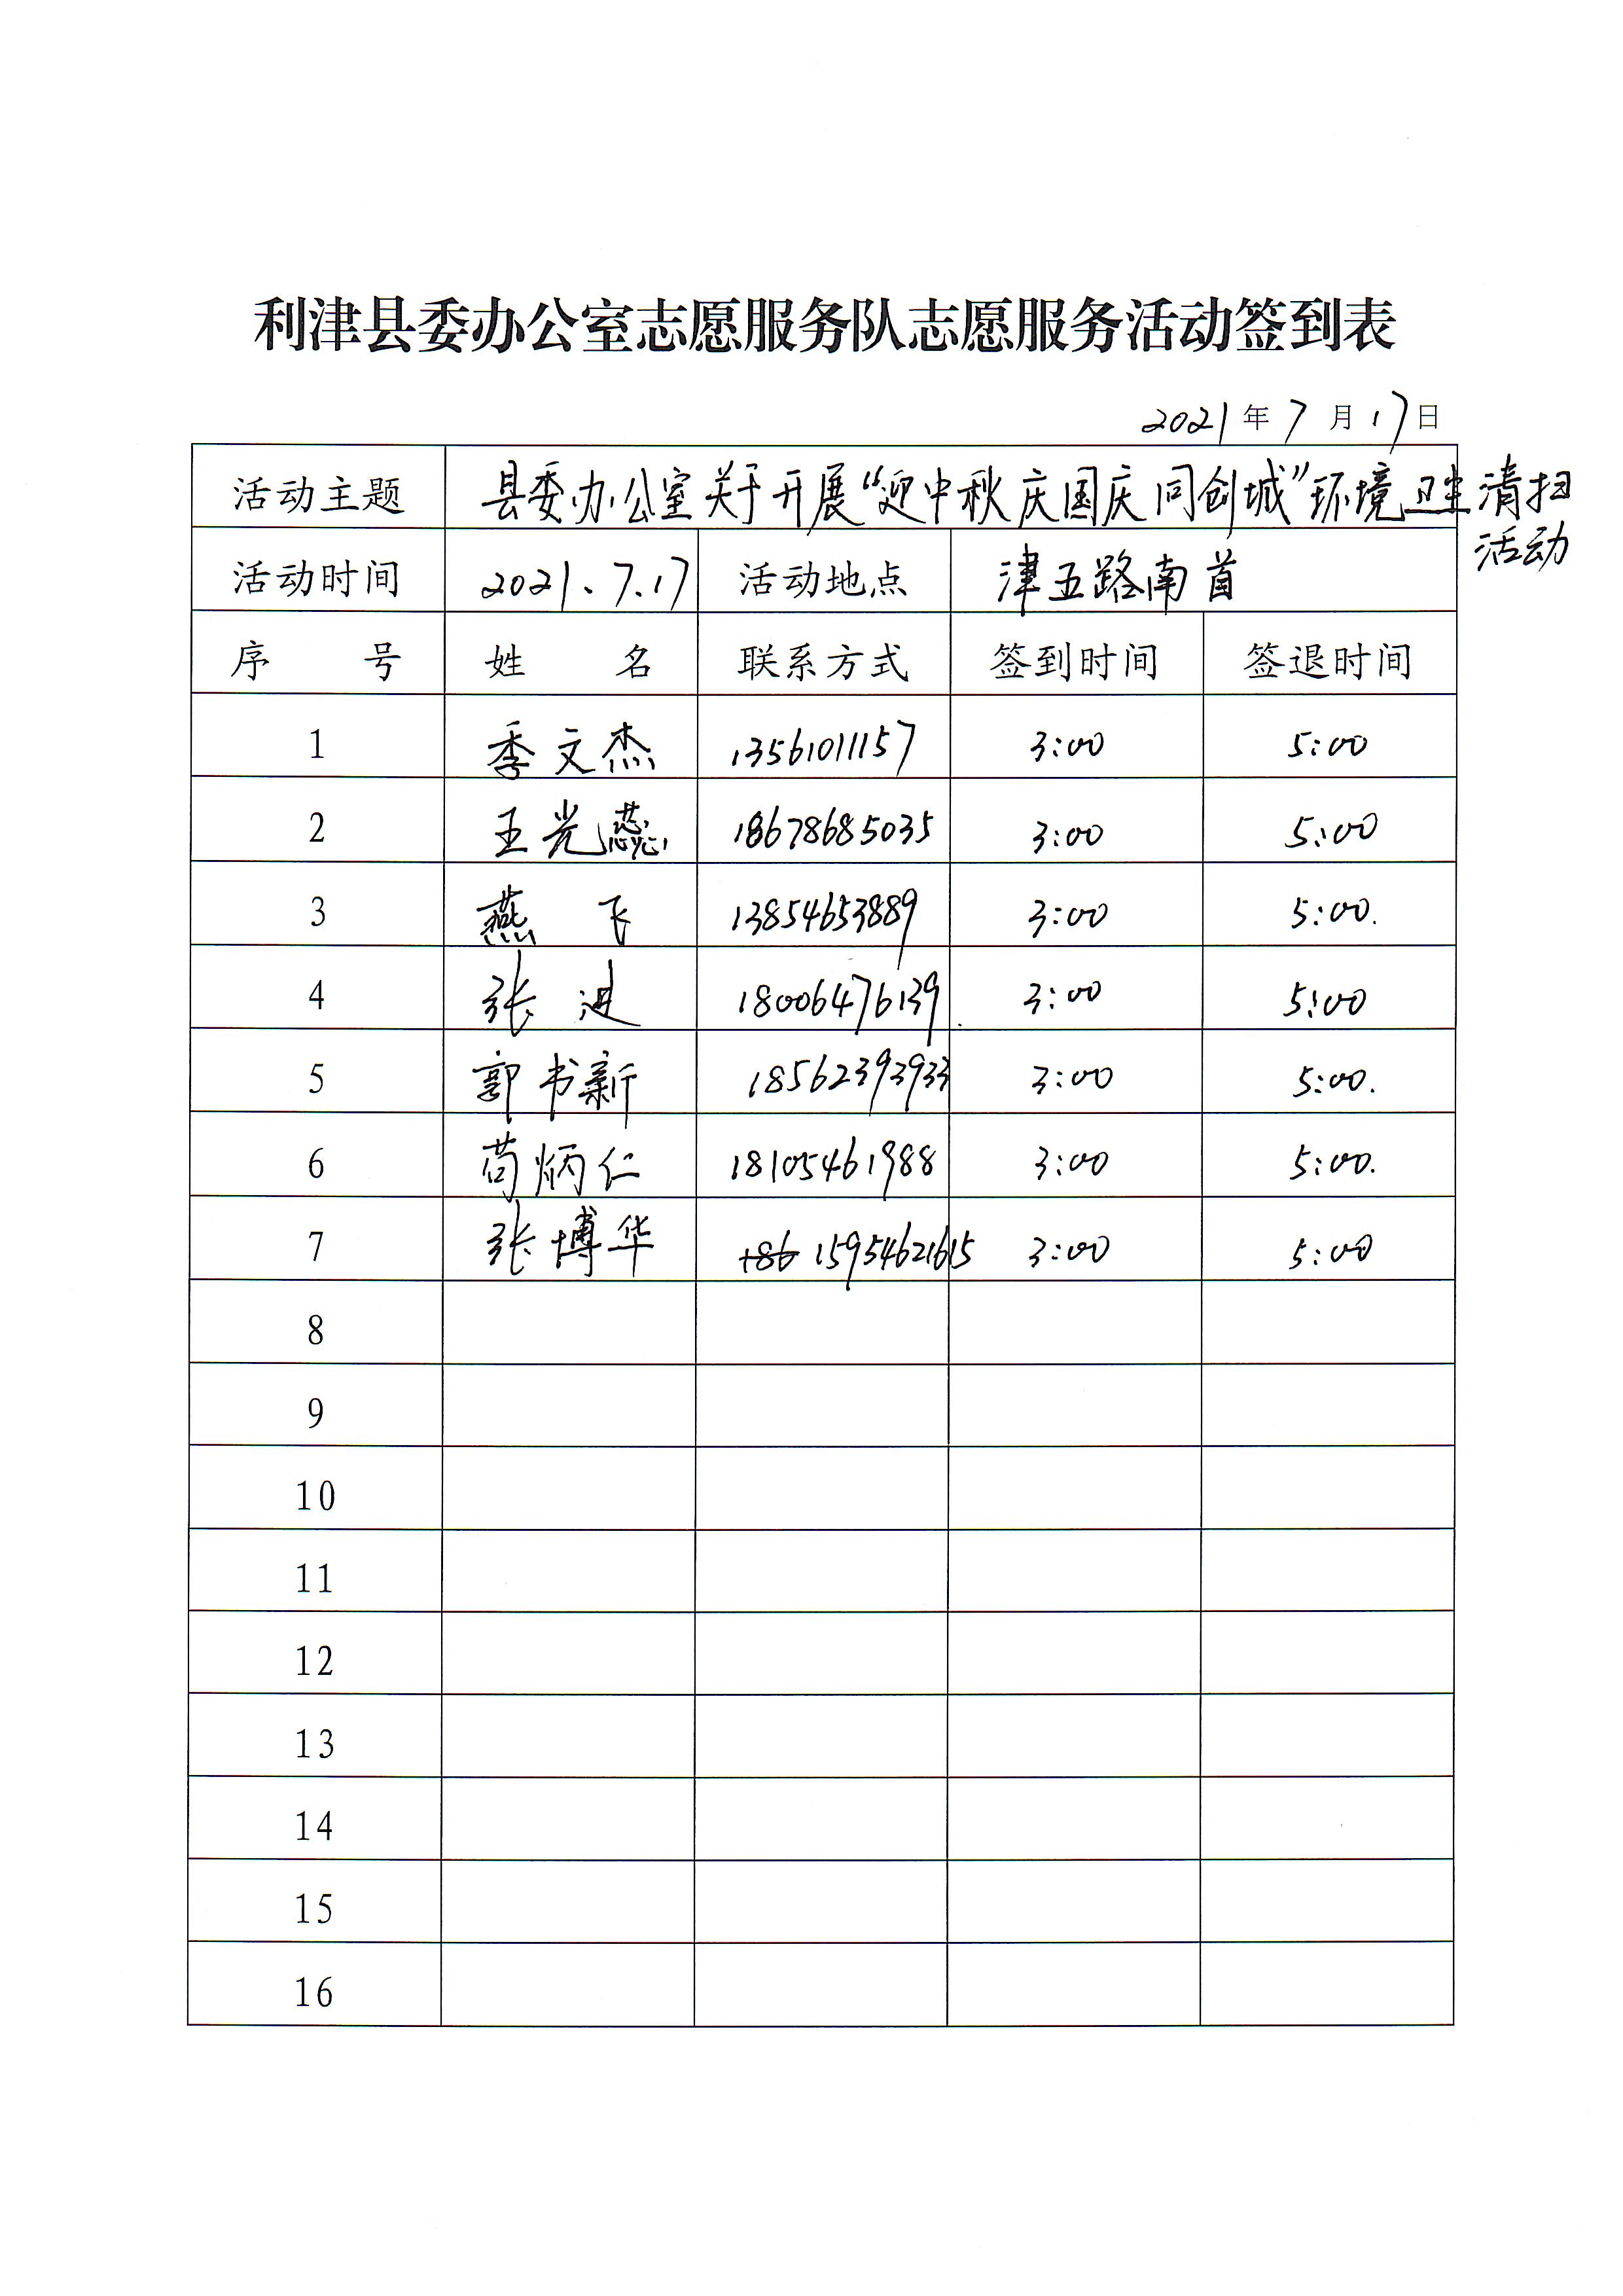 利津县委办公室志愿服务队志愿服务活动签到表
2021年7月17日
活动主题 县委办公室关于开展“迎中秋庆国庆同创城”环境卫生清扫
活动
活动时间 2021.7.17 活动地点 津五路南首
序 号 姓 名 联系方式 签到时间 签退时间
1 季文杰 13561011157 3:00 5:00
2 王光蕊 18678685035 3:00 5:00
3 燕飞 13854653889 3:00 5:00.
4 张迪 18006476139. 3:00 5:00
5 郭书新 18562393933 3:00 5:00.
6 苟炳仁 18105461988 3:00 5:00.
7 张博华 +86 15954621615 3:00 5:00
8
9
10
11
12
13
14
15
16